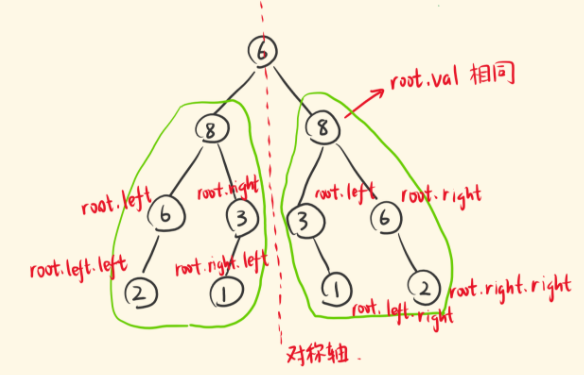 6
8
8
root.val 相同
root.left
6
root.right
3
root.left
3
root.right
6
root.left.left
2
root.right.left
1
1
root.left.right
2
root.right.right
对称轴.